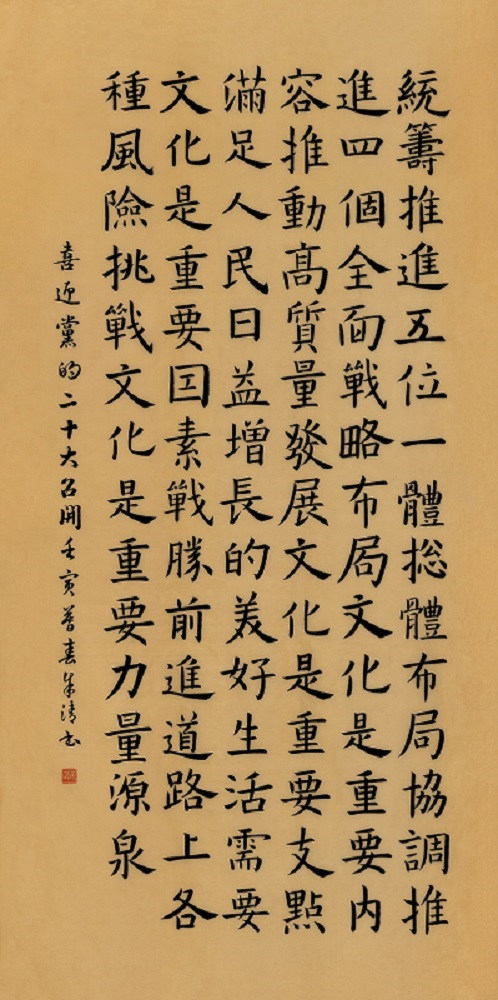 統籌推進五位一體摠體布局協調推
進四個全面戰略布局文化是重要内
容推動高質量發展文化是重要支點
滿足人民日益增長的美好生活需要
文化是重要因素戰勝前進道路上各
種風險挑戰文化是重要力量源泉
喜迎黨的二十大召開壬寅暮春朱清书